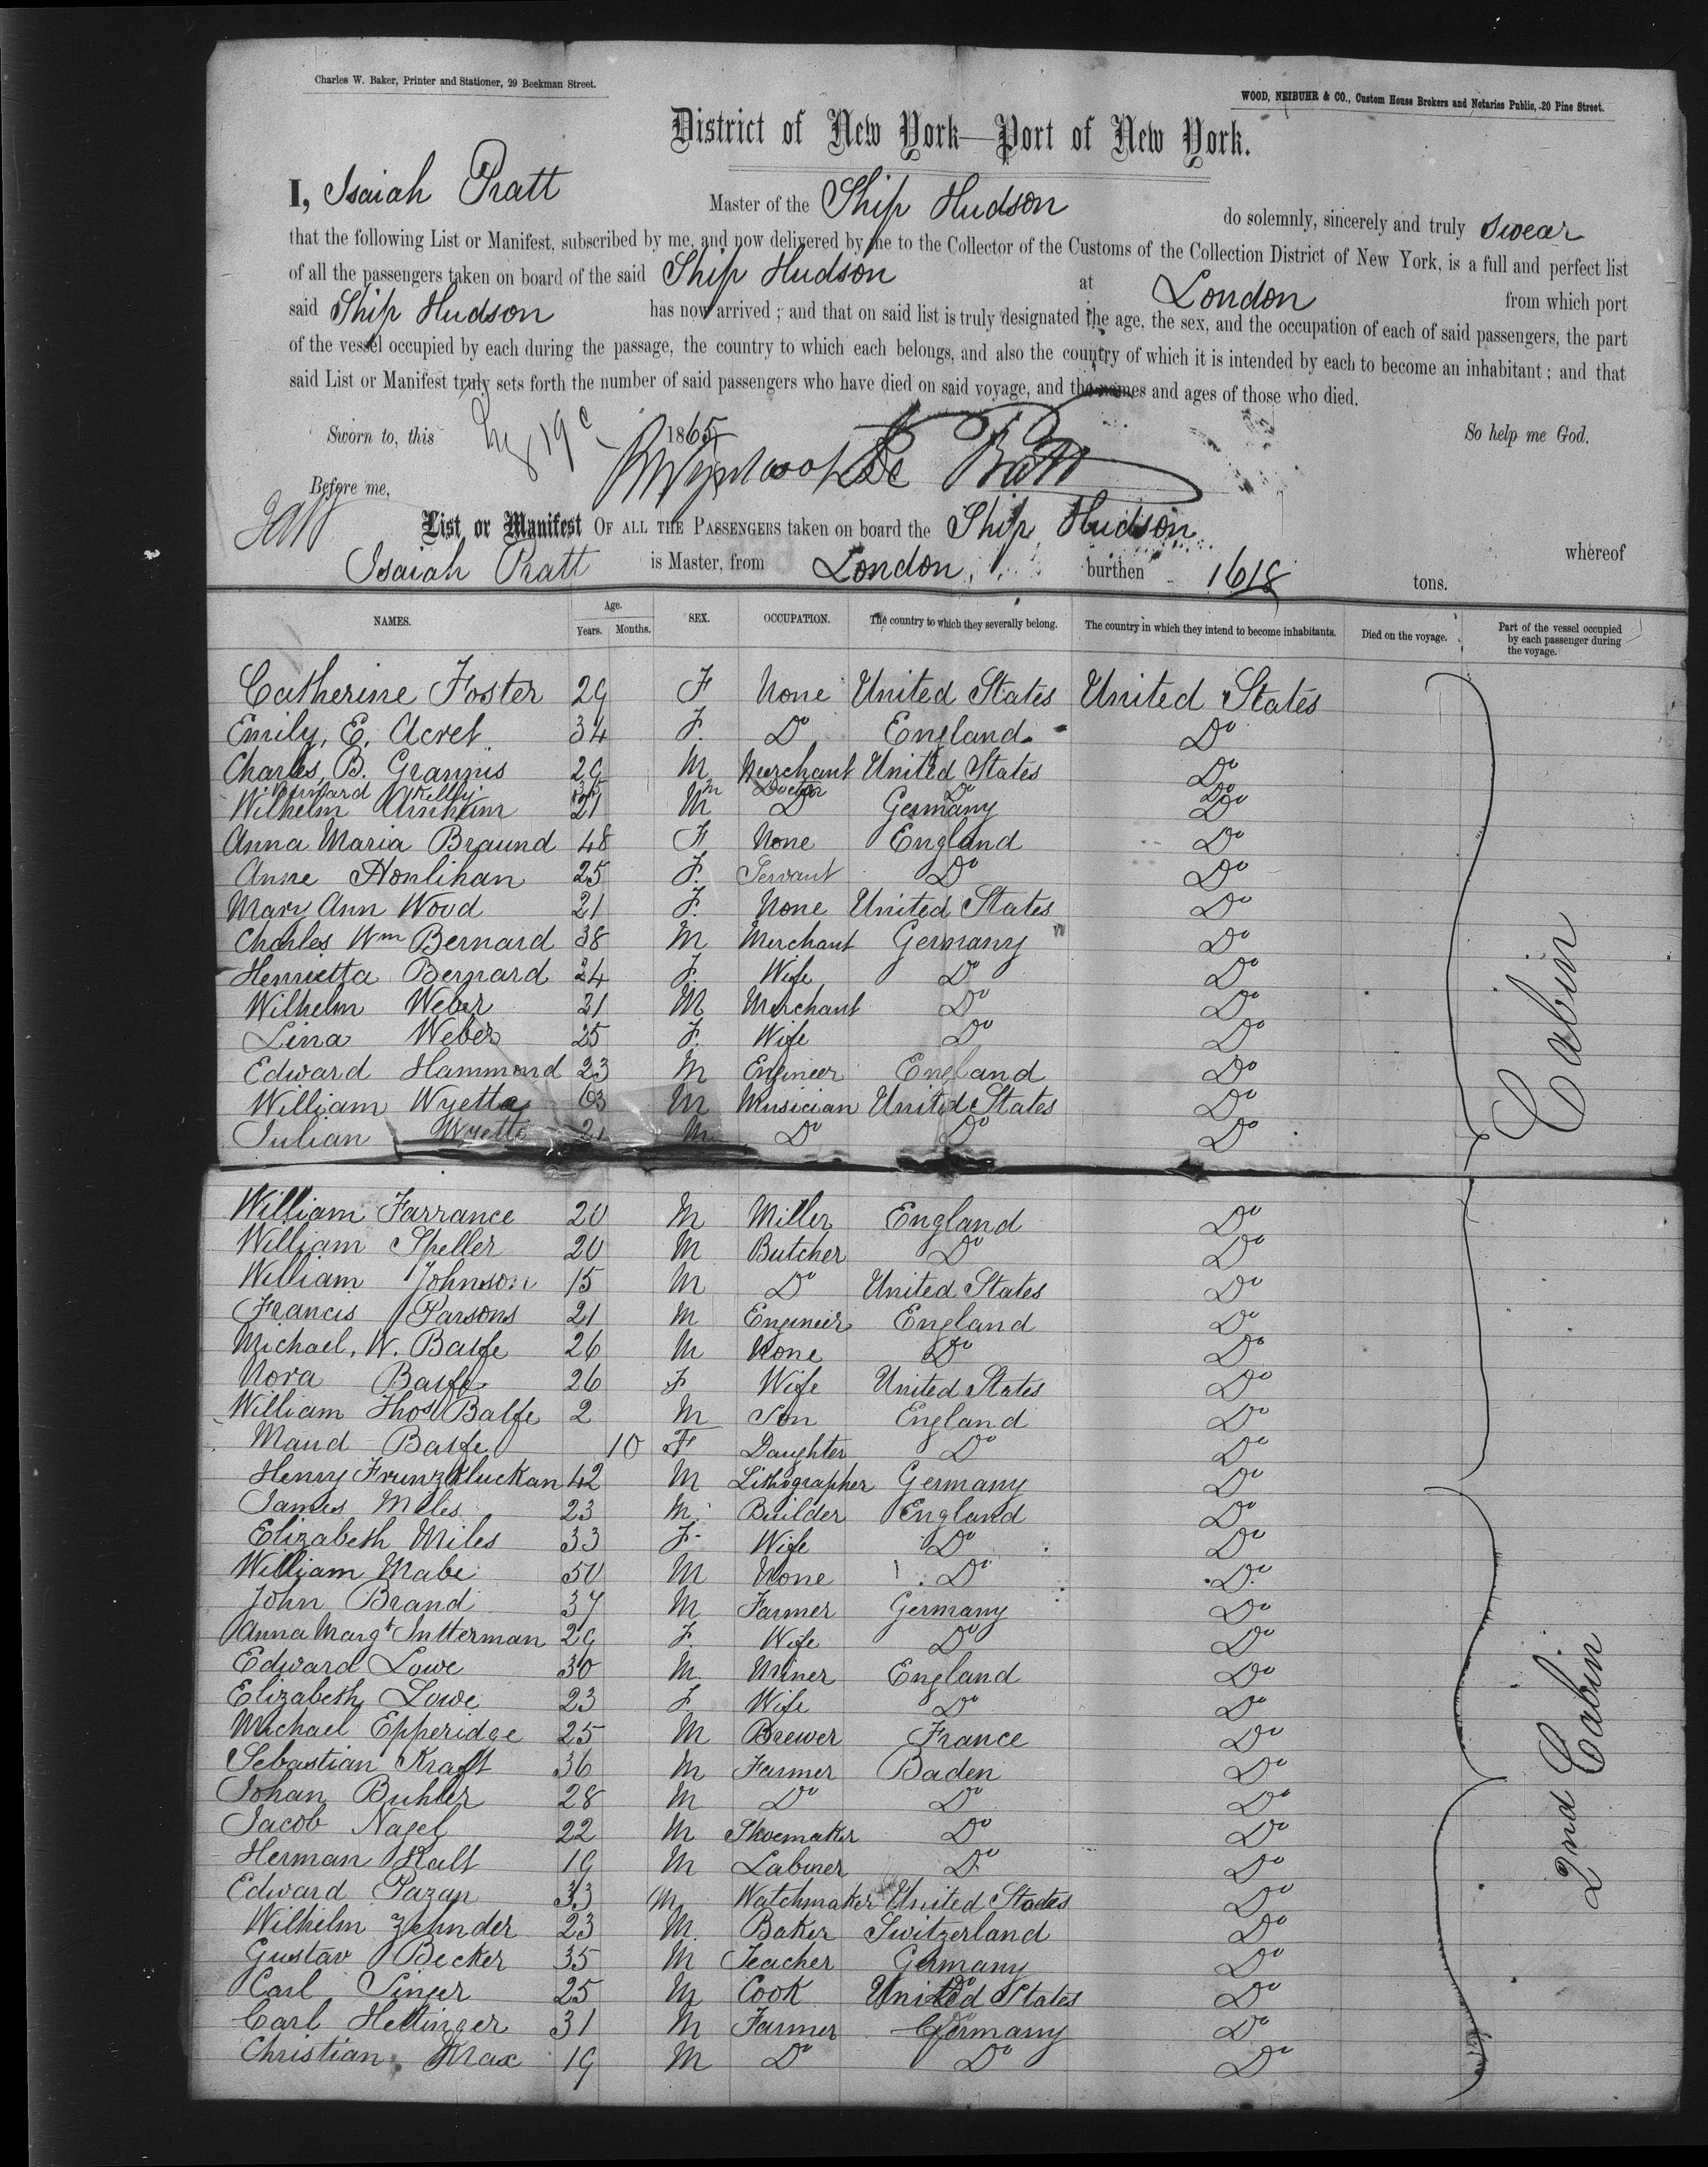 Charles W. Baker, Printer and Stationer, 29 Beekman Street.
WOOD, NEIBUHR & CO., Custom House Brokers and Notaries Public, 20 Pine Street.
District of New York—Port of New York.
I, Isaiah Pratt Master of the Ship Hudson do solemnly, sincerely and truly swear
that the following List or Manifest, subscribed by me, and now delivered by me to the Collector of the Customs of the Collection District of New York, is a full and perfect list
of all the passengers taken on board of the said Ship Hudson at London from which port
said Ship Hudson has now arrived; and that on said list is truly designated the age, the sex, and the occupation of each of said passengers, the part
of the vessel occupied by each during the passage, the country to which each belongs, and also the country of which it is intended by each to become an inhabitant; and that
said List or Manifest truly sets forth the number of said passengers who have died on said voyage, and the names and ages of those who died.
Sworn to, this 19 1865 So help me God.
Pratt
Before me,
List or Manifest OF ALL THE PASSENGERS taken on board the Ship Hudson whereof
Isaiah Pratt is Master, from London, burthen 1618 tons.
NAMES. Age. Years. Months. SEX. OCCUPATION. The country to which they severally belong. The country in which they intend to become inhabitants. Died on the voyage. Part of the vessel occupied by each passenger during the voyage.
Catherine Foster 29 F None United States United States
Emily, E. Acret 34 F. Do England. Do
Charles, B. Grannis 29 M Merchant United States Do
Killy 35 m Doctor Do Do
Wilhelm Arnheim 21 M Do Germany Do
Anna Maria Braund 48 F None England Do
Anne Honlihan 25 F. Servant Do Do
Mary Ann Wood 21 F. None United States Do
Charles Wm Bernard 38 M Merchant Germany Do
Henrietta Bernard 24 F. Wife Do Do
Wilhelm Weber 31 M Merchant Do Do
Lina Weber 25 F. Wife Do Do
Edward Hammond 23 M Engineer England Do
William Wyette 63 M Musician United States Do
Julian Wyette 21 M Do Do Do
Cabin
William Farrance 20 M Miller England Do
William Speller 20 M Butcher Do Do
William Johnson 15 M Do United States Do
Francis Parsons 21 M Engineer England Do
Michael, W. Balfe 26 M None Do Do
Nora Balfe 26 F Wife United States Do
William Thos Balfe 2 M Son England Do
Maud Balfe 10 F Daughter Do Do
Henry Frunz Kluckan 42 M Lithographer Germany Do
James Miles 23 M. Builder England Do
Elizabeth Miles 33 F. Wife Do Do
William Mabe 50 M None Do Do
John Brand 37 M Farmer Germany Do
Anna Margt Sutterman 29 F. Wife Do Do
Edward Lowe 30 M. Miner England Do
Elizabeth Lowe 23 F Wife Do Do
Michael Epperidge 25 M Brewer France Do
Sebastian Kraft 36 M Farmer Baden Do
Johan Buhler 28 M Do Do Do
Jacob Nagel 22 M Shoemaker Do Do
Herman Kalt 19 M Labourer Do Do
Edward Pazan 33 M Watchmaker United States Do
Wilhelm Zehnder 23 M. Baker Switzerland Do
Gustav Becker 35 M Teacher Germany Do
Carl Singer 25 M Cook United States Do
Carl Hettinger 31 M Farmer Germany Do
Christian Krax 19 M Do Do Do
2nd Cabin